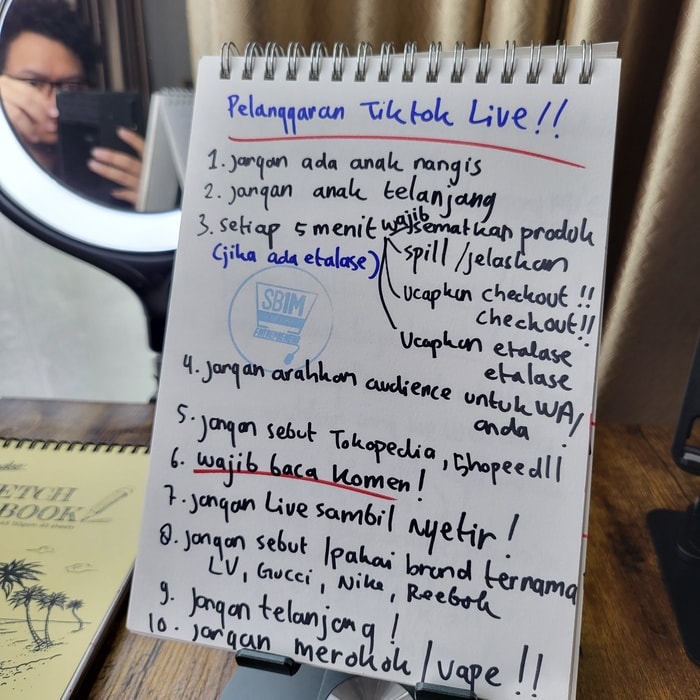 Pelanggaran Tiktok Live!!
1. jangan ada anak nangis
2. jangan anak telanjang
3. setiap 5 menit wajib sematkan produk
(jika ada etalase)
spill /jelaskan
Ucapkan checkout !!
checkout!!
Ucapkan etalase
etalase
SB1M
ENTREPRENEUR
4. jangan arahkan audience untuk WA/
anda
5. jangan sebut Tokopedia, Shopee dll
6. wajib baca komen!
7. jangan Live sambil nyetir!
8. jangan sebut /pakai brand ternama
LV, Gucci, Nike, Reebok
9. jangan telanjang!
10. jangan merokok / vape !!
ETCH
BOOK